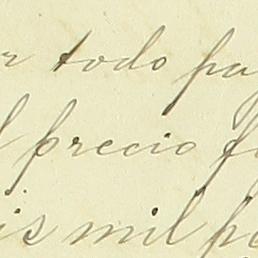 r todo pa
l precio f
is mil pe